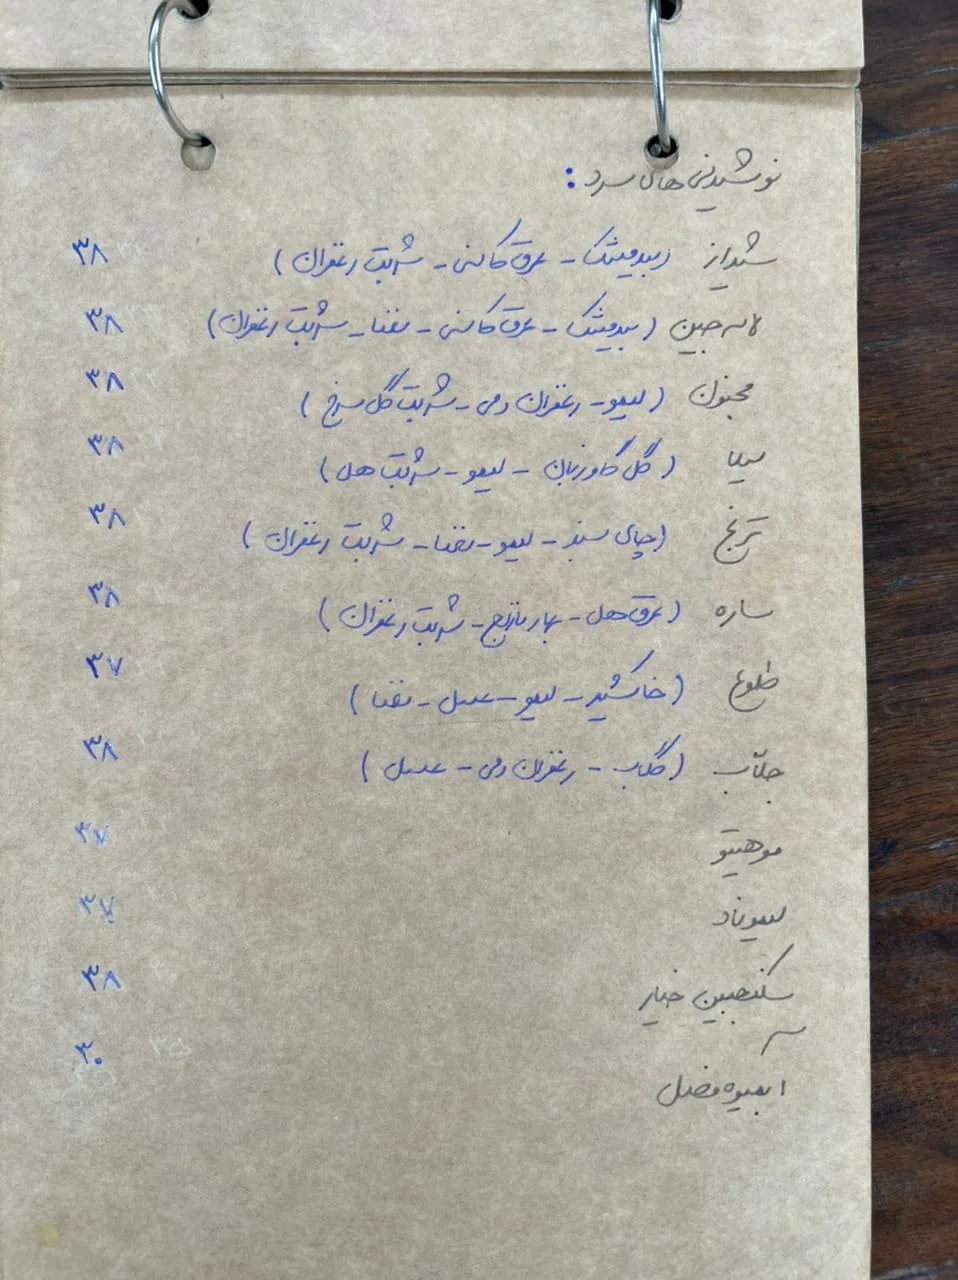 نوشیدنی های سرد :
شیراز (بیدمشک - عرق کاسنی - شربت زعفران) ۳۸
لاله جین (بیدمشک - عرق کاسنی - نعنا - شربت زعفران) ۳۸
مجنون (لیمو - زعفران دمی - شربت گل سرخ) ۳۸
لیلا (گل گاوزبان - لیمو - شربت هل) ۳۸
ترنج (چای سبز - لیمو - نعنا - شربت زعفران) ۳۸
ساره (عرق هل - بهار نارنج - شربت زعفران) ۳۸
طلوع (خاکشیر - لیمو - عسل - نعنا) ۳۷
جلّاب (گلاب - زعفران دمی - عسل) ۳۸
موهیتو ۳۷
لیموناد ۳۷
سکنجبین خیار ۳۸
آبمیوه فصل ۳۰